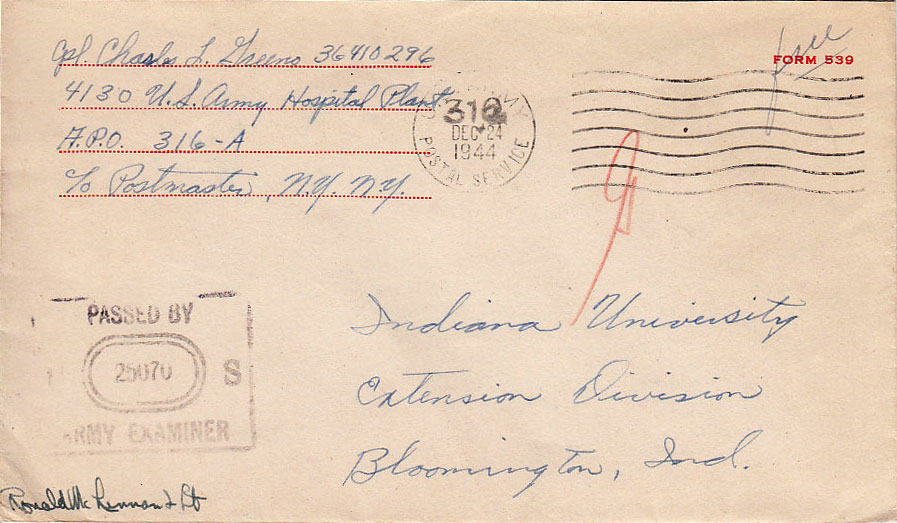 Cpl. Charles L. Greeno 36410296
4130 U.S. Army Hospital Plant
A.P.O. 316-A
c/o Postmaster, N.Y. N.Y.
ARMY
316
DEC 24
1944
POSTAL SERVICE
free
FORM 539
9
Indiana University
Extension Division
Bloomington, Ind.
PASSED BY
25070 S
ARMY EXAMINER
Ronald